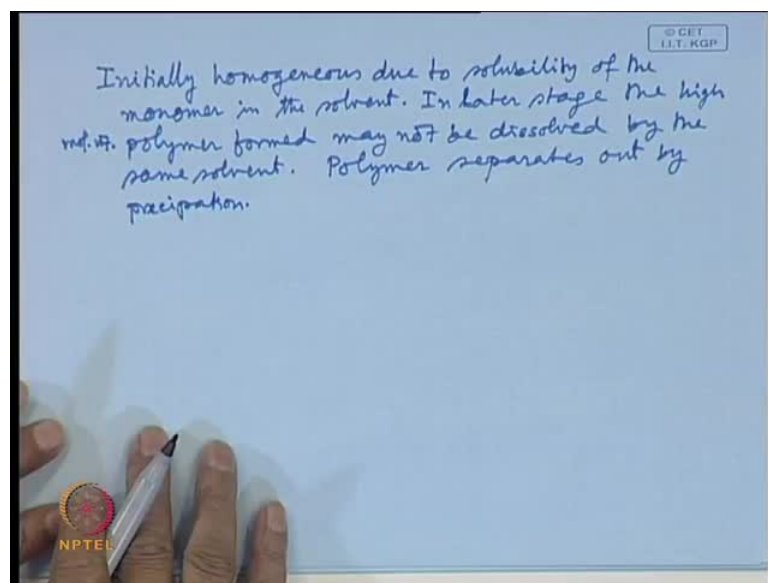 © CET
I.I.T. KGP
Initially homogeneous due to solubility of the
monomer in the solvent. In later stage the high
mol. wt. polymer formed may not be dissolved by the
same solvent. Polymer separates out by
precipation.
NPTEL